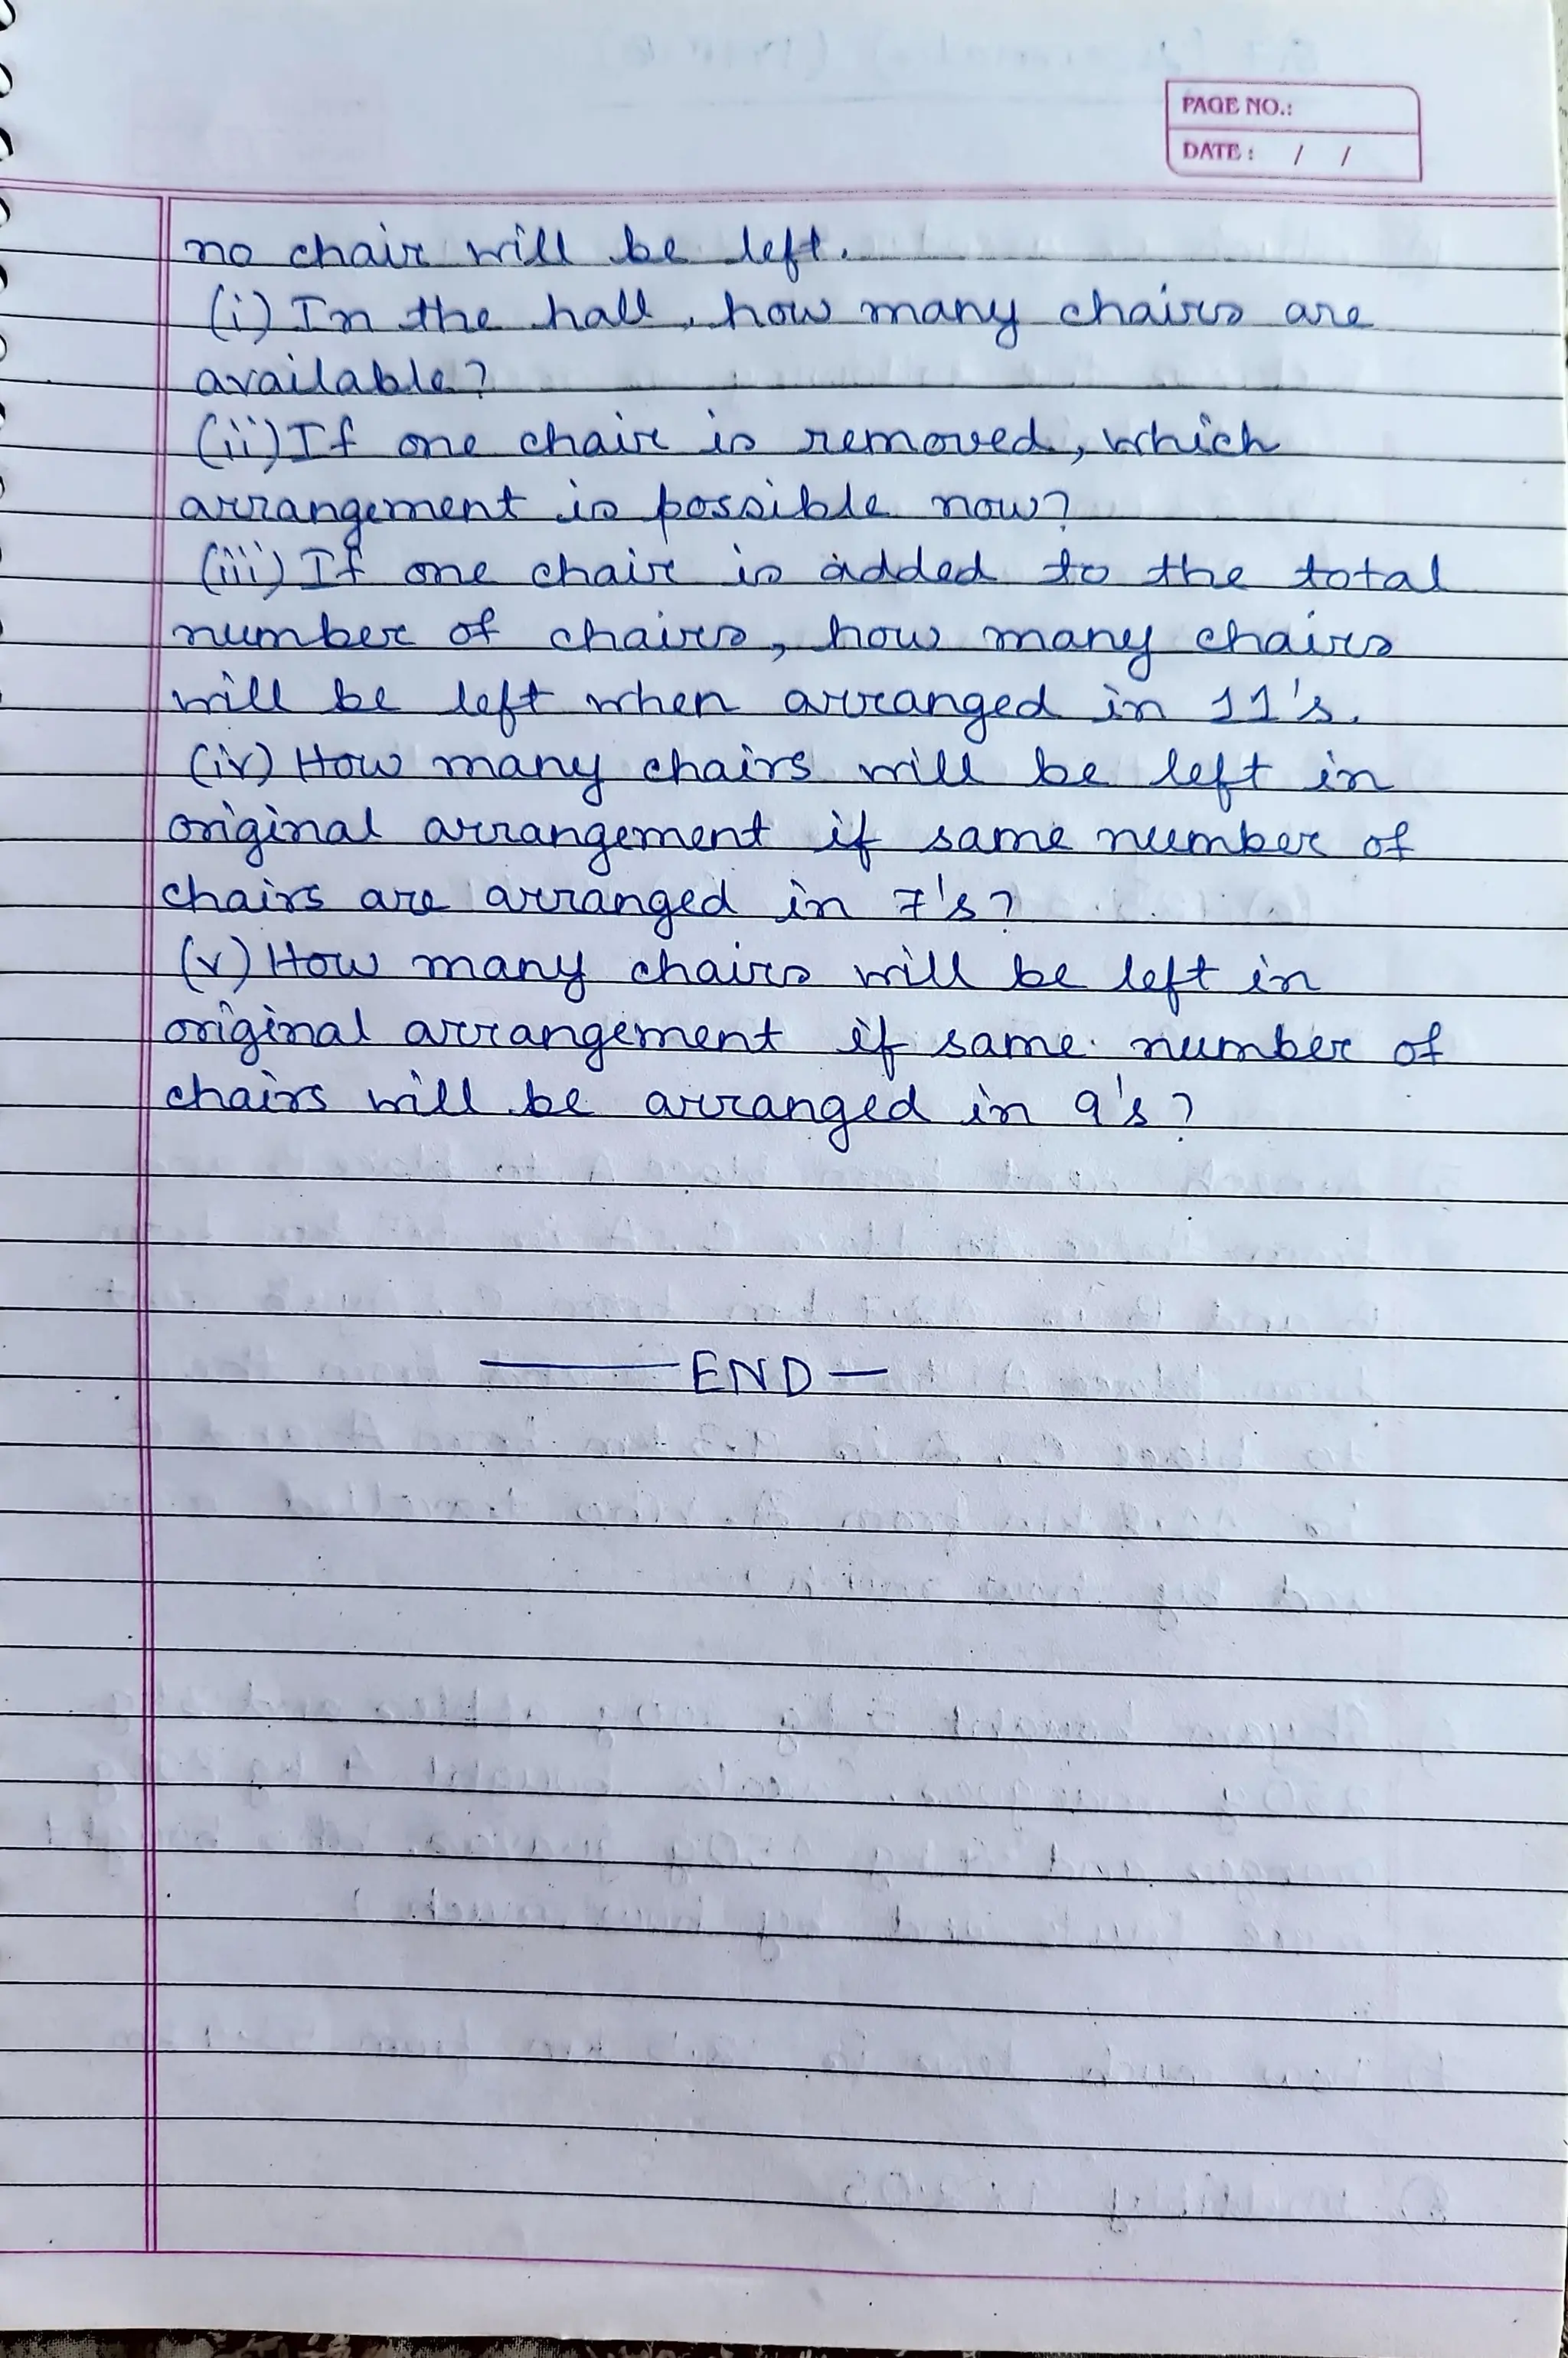 PAGE NO.:
DATE: / /
no chair will be left.
(i) In the hall, how many chairs are
available?
(ii) If one chair is removed, which
arrangement is possible now?
(iii) If one chair is added to the total
number of chairs, how many chairs
will be left when arranged in 11's.
(iv) How many chairs will be left in
original arrangement if same number of
chairs are arranged in 7's?
(v) How many chairs will be left in
original arrangement if same number of
chairs will be arranged in 9's?
—END—